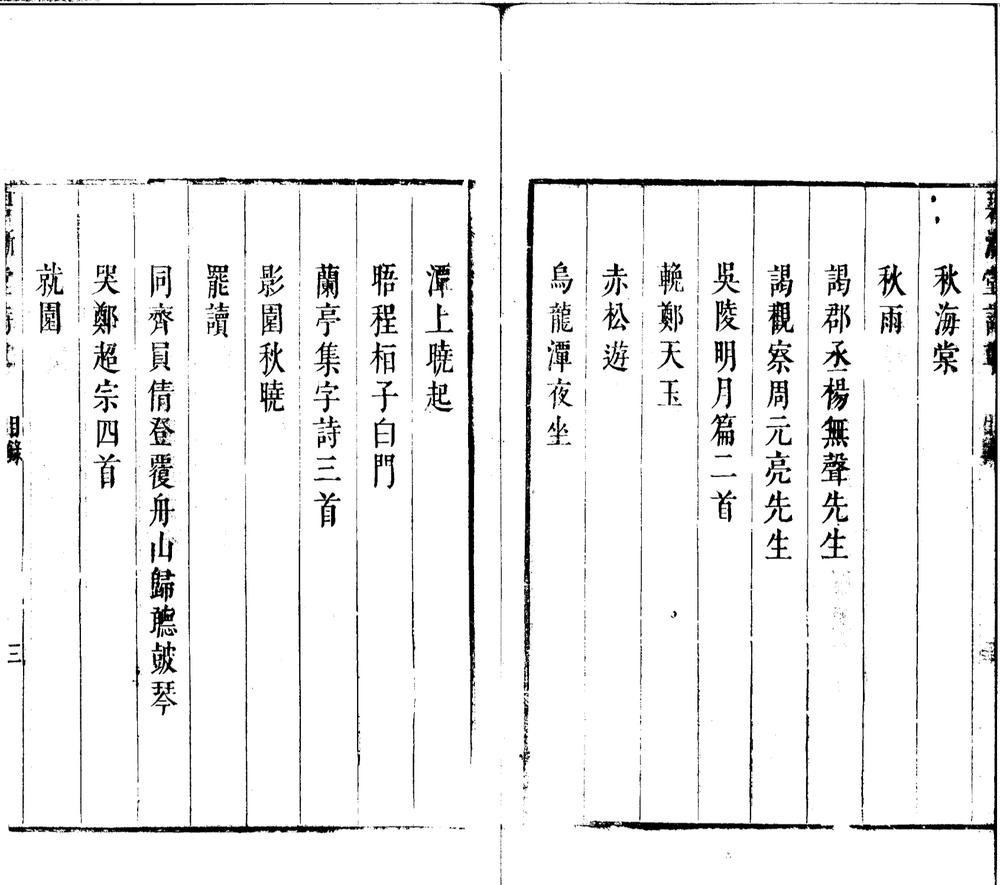 秋海棠
秋雨
謁郡丞楊無聲先生
謁觀察周元亮先生
吳陵明月篇二首
輓鄭天玉
赤松遊
烏龍潭夜坐
潭上曉起
晤程栢子白門
蘭亭集字詩三首
影園秋曉
罷讀
同齊員倩登覆舟山歸聽鼓琴
哭鄭超宗四首
就園
目錄
三